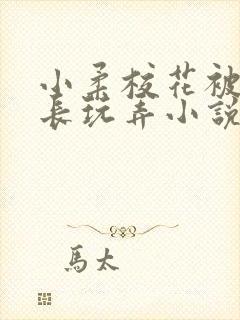 小柔校花被
長玩弄小説
馬太